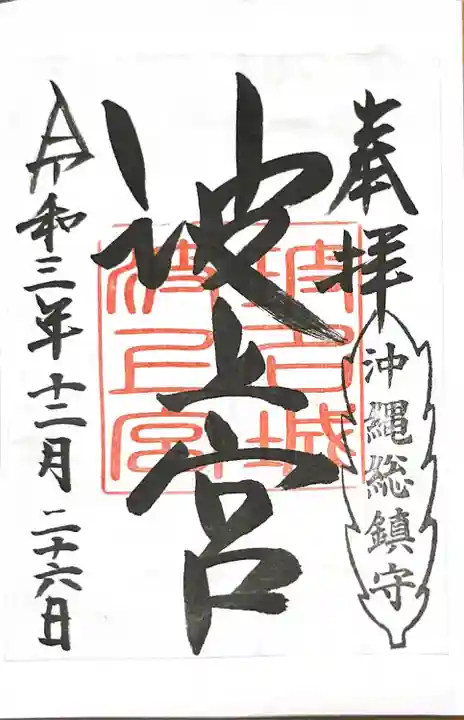 奉拝
沖縄総鎮守
波上宮
波上宮
令和三年十二月二十六日